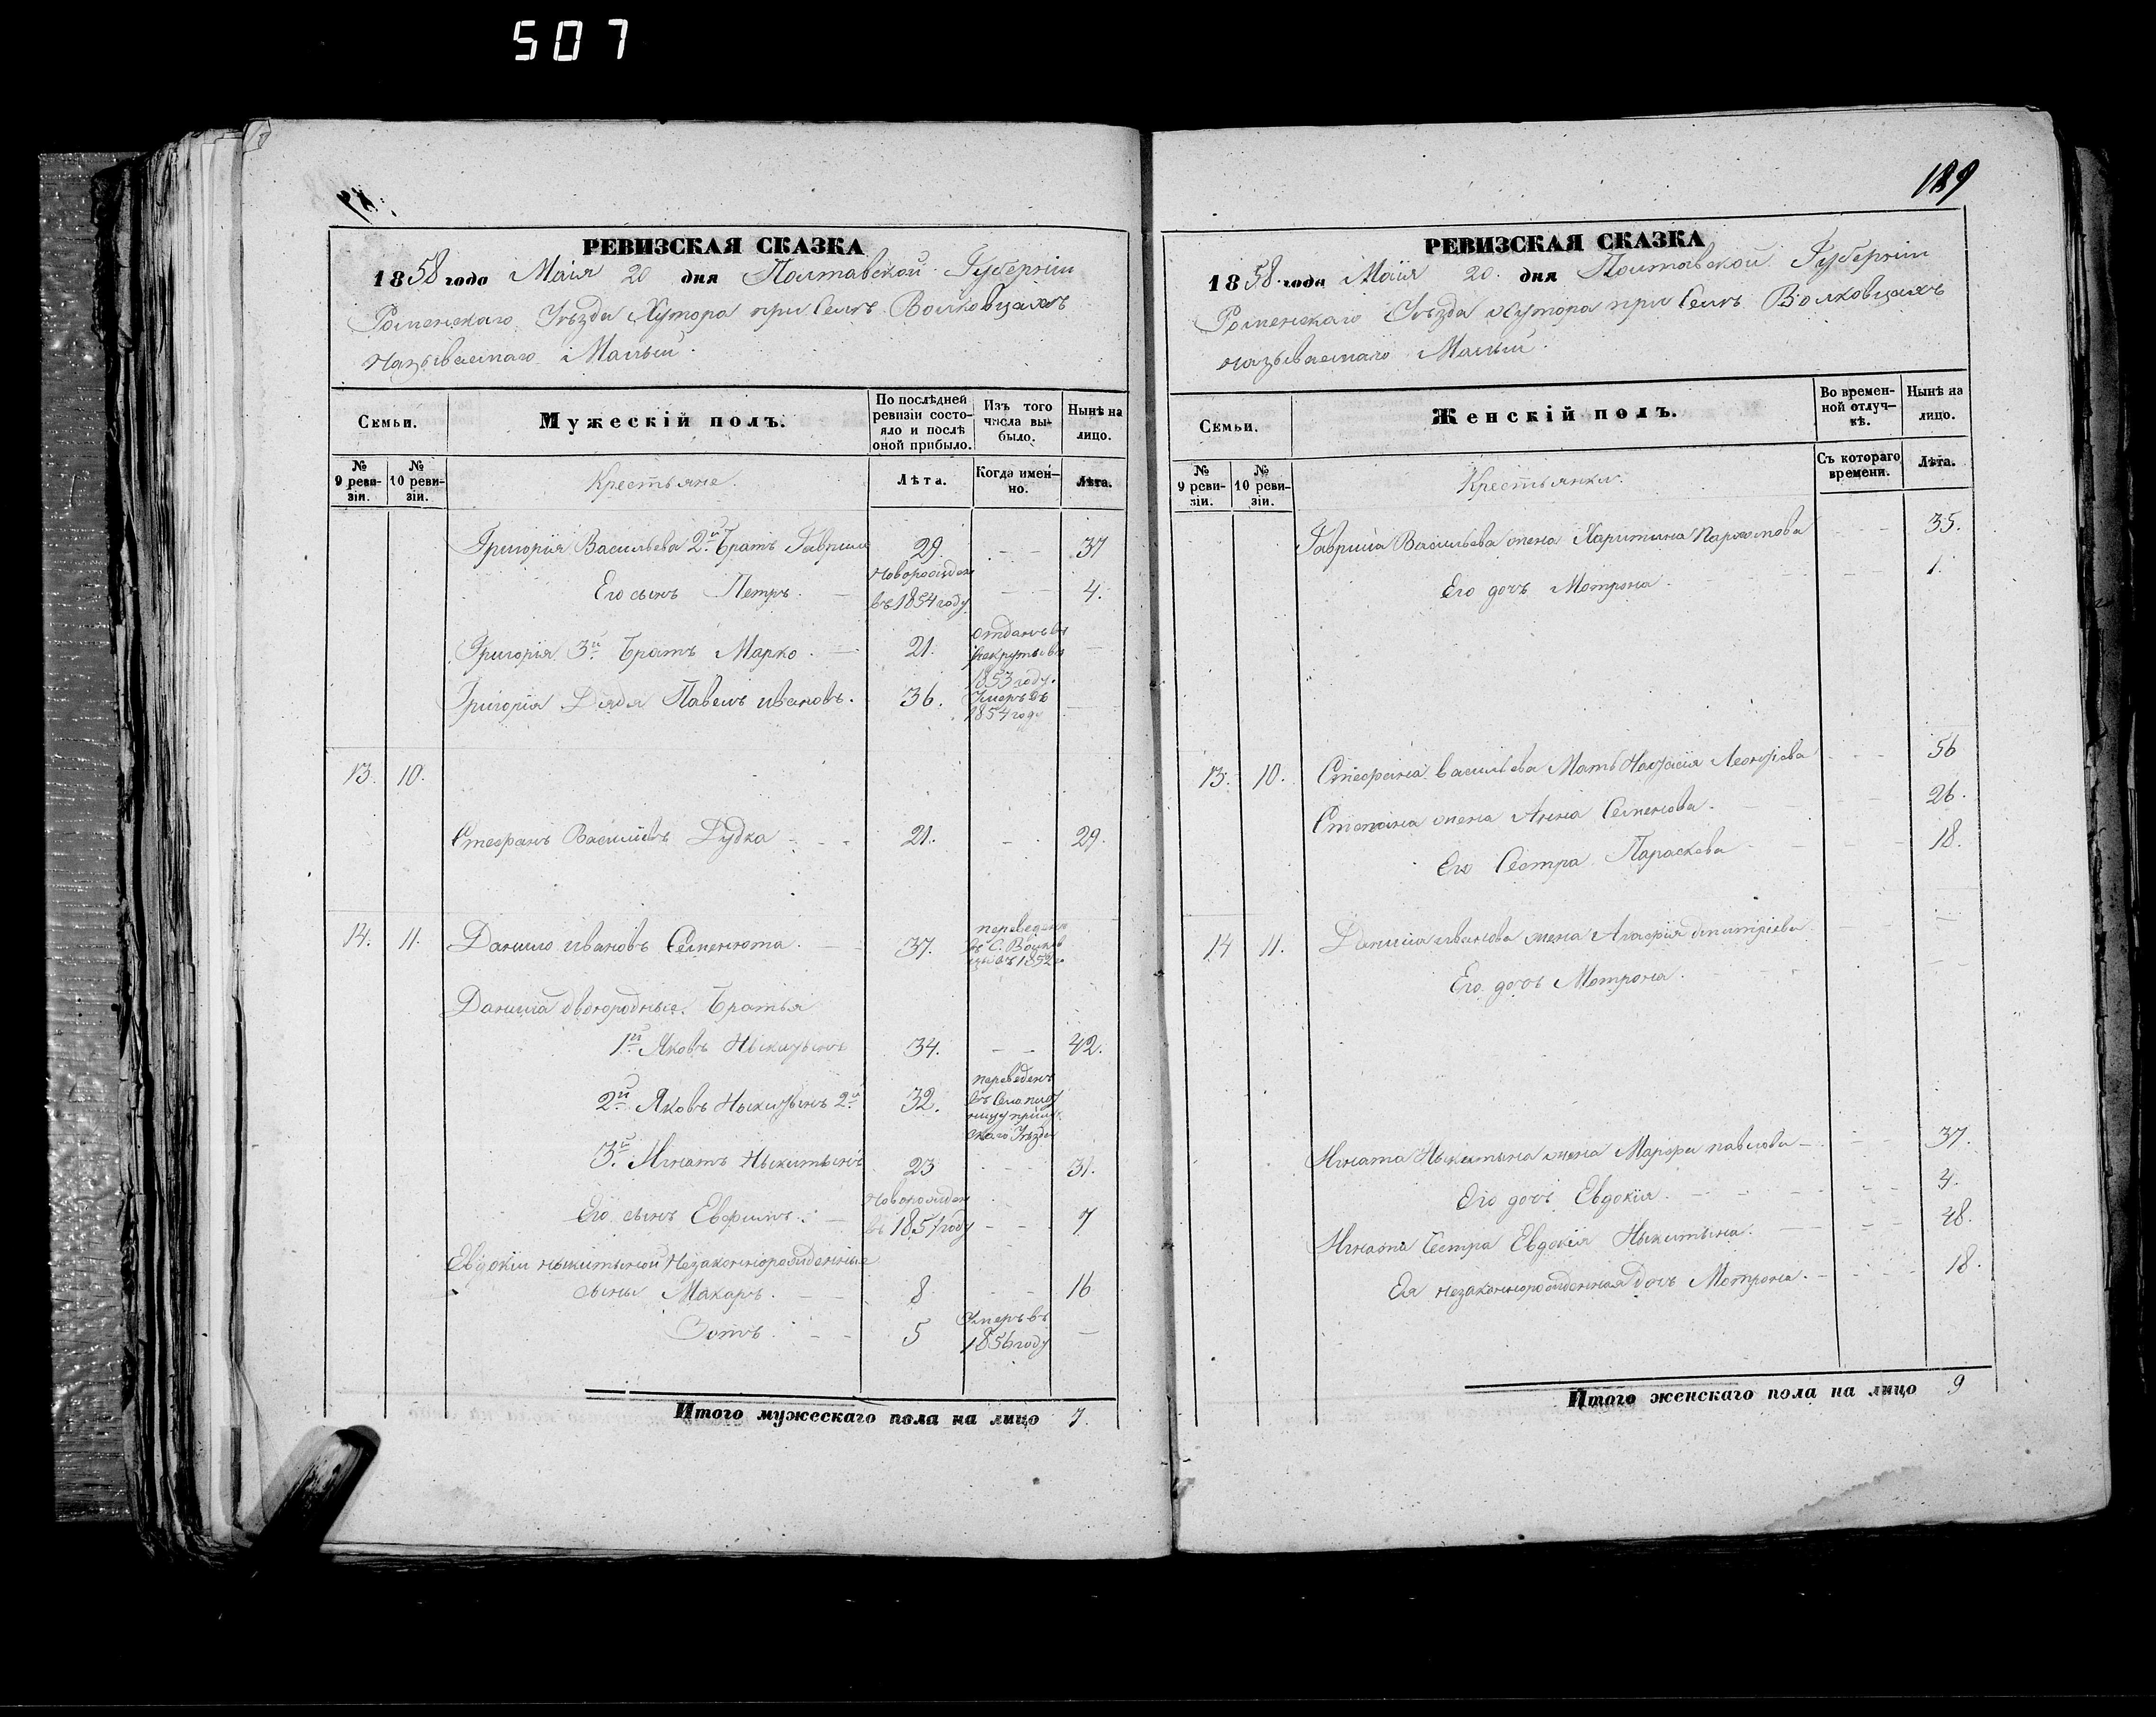 507
РЕВИЗСКАЯ СКАЗКА
1858 года Маія 20 дня Полтавской Губерніи
Роменскаго Уѣзда Хутора при Селѣ Волковцахъ
называемаго Малый.
Семьи.
Мужескій полъ.
По послѣдней ревизіи состояло и послѣ оной прибыло.
Изъ того числа выбыло.
Нынѣ на лицо.
№ 9 ревизіи.
№ 10 ревизіи.
Крестьяне.
Лѣта.
Когда именно.
Лѣта.
Григорія Васильева 2й Братъ Гаврило 29. - - 37
Его сынъ Петръ. новорожден въ 1854 году - - 4.
Григорія 3й Братъ Марко. 21. отданъ въ рекруты въ 1853 году. -
Григорія Дядя Павелъ ивановъ. 36. Умеръ въ 1854 году -
13. 10.
Стефанъ Васильевъ Дудка 21. - 29.
14. 11. Данило ивановъ Семенюта. 37. переведенъ въ С. Волков 1852
Данила двоюродные Братья
1й Яковъ Ныкитынъ 34. - - 42.
2й Яковъ Ныкитынъ 2й 32. переведенъ въ Село Уѣзда
3й Игнатъ Ныкитынъ 23 - - 31.
Его сынъ Евфимъ. новорожден въ 1851 году - - 7
Евдокіи ныкитыной Незаконнорожденные
сыны Макаръ. 8 - - 16
Зотъ. 5 Умеръ въ 1856 году -
Итого мужескаго пола на лицо 7.
129
РЕВИЗСКАЯ СКАЗКА
1858 года Маія 20. дня Полтавской Губерніи
Роменскаго Уѣзда Хутора при Селѣ Волковцахъ
называемаго Малый.
Семьи.
Женскій полъ.
Во временной отлучкѣ.
Нынѣ на лицо.
№ 9 ревизіи.
№ 10 ревизіи.
Крестьянки.
Съ котораго времени.
Лѣта.
Гаврила Васильева жена Харитина Пархомова - - 35.
Его дочь Мотрона. - - 1.
13. 10. Стефана Васильева Мать Настасія Леонтіева - - 56
Степана жена Анна Семенова. - - 26.
Его Сестра Параскева - - 18.
14 11. Данила иванова жена Агафія дмитріева - - -
Его дочь Мотрона. - - -
Игната Ныкитына жена Марфа павлова - - 37.
Его дочь Евдокія. - - 4.
Игната Сестра Евдокія Ныкитына. - - 48.
Ея незаконнорожденная Дочь Мотрона. - - 18.
Итого женскаго пола на лицо 9